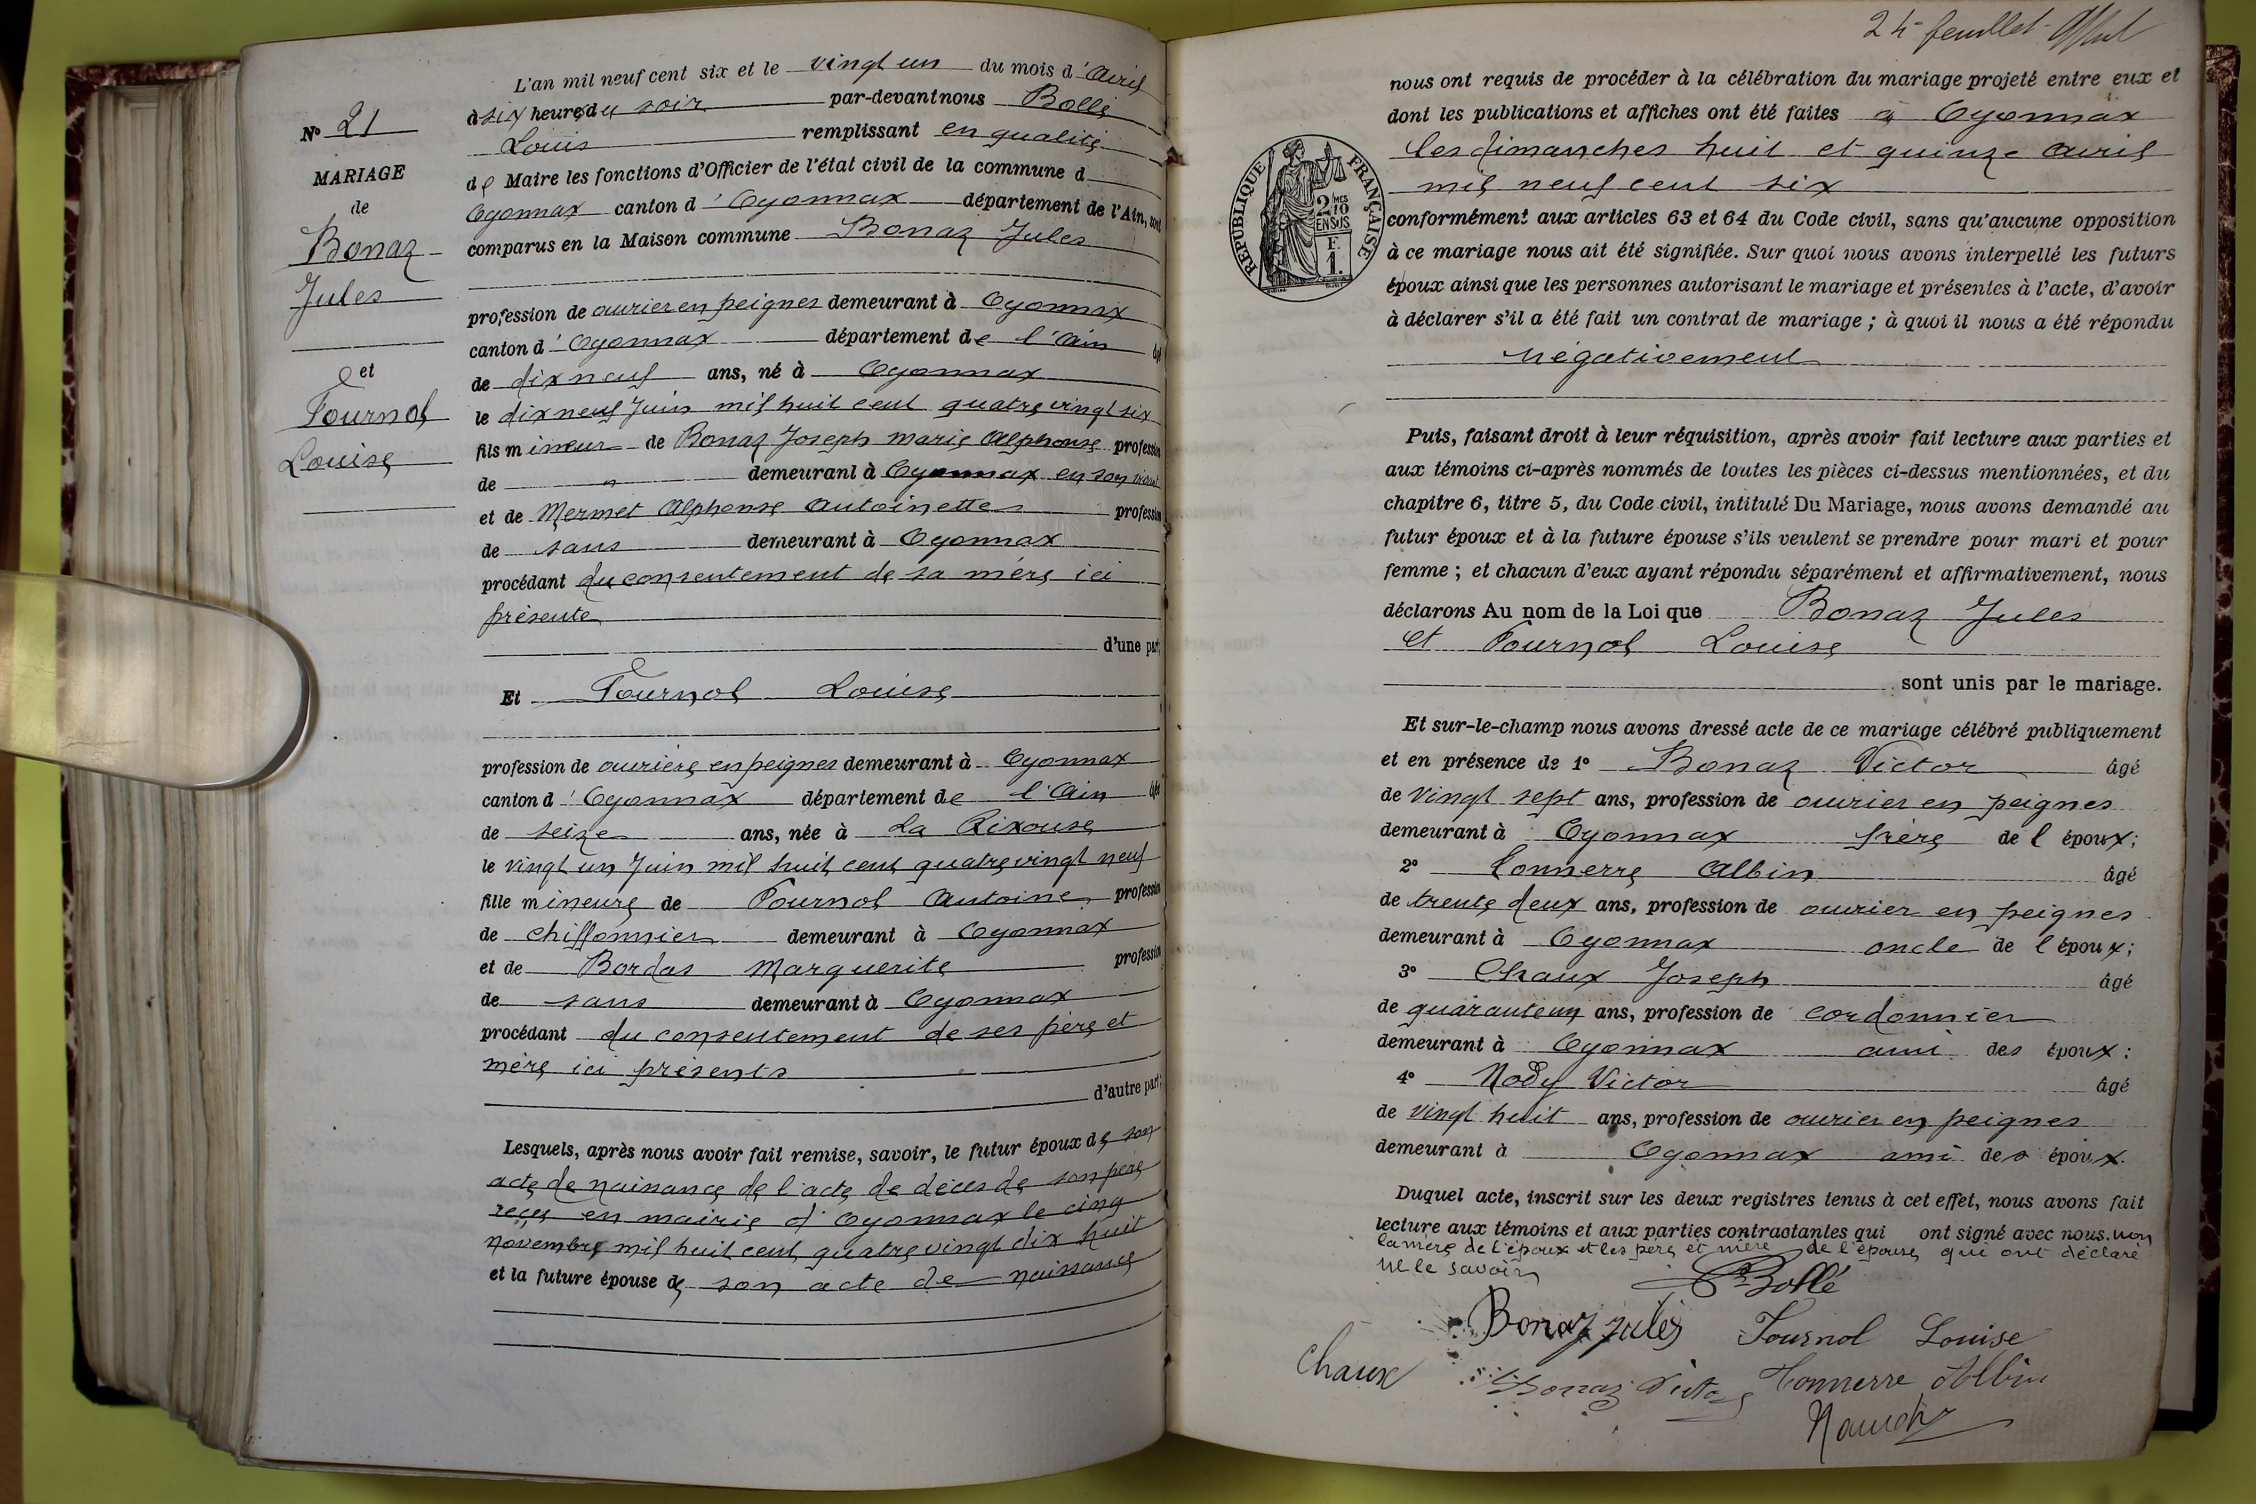 N° 21
MARIAGE
de
Bonaz
Jules
et
Tournol
Louise
L'an mil neuf cent six et le vingt un du mois d'avril
à six heures du soir par-devant nous Bollé
Louis remplissant en qualité
de Maire les fonctions d'Officier de l'état civil de la commune d
Oyonnax canton d'Oyonnax département de l'Ain, sont
comparus en la Maison commune Bonaz Jules
profession de ouvrier en peignes demeurant à Oyonnax
canton d'Oyonnax département de l'Ain âgé
de dix neuf ans, né à Oyonnax
le dix neuf Juin mil huit cent quatre vingt six
fils mineur de Bonaz Joseph Marie Alphonse profession
de " demeurant à Oyonnax en son vivant
et de Mermet Alphonse Antoinette profession
de sans demeurant à Oyonnax
procédant du consentement de sa mère ici
présente
d'une part;
Et Tournol Louise
profession de ouvrière en peignes demeurant à Oyonnax
canton d'Oyonnax département de l'Ain âgée
de seize ans, née à La Rixouse
le vingt un Juin mil huit cent quatre vingt neuf
fille mineure de Tournol Antoine profession
de chiffonnier demeurant à Oyonnax
et de Bordas Marguerite profession
de sans demeurant à Oyonnax
procédant du consentement de ses père et
mère ici présents
d'autre part;
Lesquels, après nous avoir fait remise, savoir, le futur époux de son
acte de naissance de l'acte de décès de son père
reçu en mairie d'Oyonnax le cinq
novembre mil huit cent quatre vingt dix huit
et la future épouse de son acte de naissance
24e feuillet
nous ont requis de procéder à la célébration du mariage projeté entre eux et
dont les publications et affiches ont été faites à Oyonnax
les dimanches huit et quinze avril
mil neuf cent six
RÉPUBLIQUE FRANÇAISE
2/10MES
EN SUS
F.
1.
conformément aux articles 63 et 64 du Code civil, sans qu'aucune opposition
à ce mariage nous ait été signifiée. Sur quoi nous avons interpellé les futurs
époux ainsi que les personnes autorisant le mariage et présentes à l'acte, d'avoir
à déclarer s'il a été fait un contrat de mariage ; à quoi il nous a été répondu
négativement
Puis, faisant droit à leur réquisition, après avoir fait lecture aux parties et
aux témoins ci-après nommés de toutes les pièces ci-dessus mentionnées, et du
chapitre 6, titre 5, du Code civil, intitulé Du Mariage, nous avons demandé au
futur époux et à la future épouse s'ils veulent se prendre pour mari et pour
femme ; et chacun d'eux ayant répondu séparément et affirmativement, nous
déclarons Au nom de la Loi que Bonaz Jules
et Tournol Louise
sont unis par le mariage.
Et sur-le-champ nous avons dressé acte de ce mariage célébré publiquement
et en présence de 1° Bonaz Victor âgé
de vingt sept ans, profession de ouvrier en peignes
demeurant à Oyonnax frère de l'époux;
2° Tonnerre Albin âgé
de trente deux ans, profession de ouvrier en peignes
demeurant à Oyonnax oncle de l'époux;
3° Chaux Joseph âgé
de quarante un ans, profession de cordonnier
demeurant à Oyonnax ami des époux;
4° Nody Victor âgé
de vingt huit ans, profession de ouvrier en peignes
demeurant à Oyonnax ami des époux.
Duquel acte, inscrit sur les deux registres tenus à cet effet, nous avons fait
lecture aux témoins et aux parties contractantes qui ont signé avec nous. non
la mère de l'époux et les père et mère de l'épouse qui ont déclaré
ne le savoir
Bollé
Bonaz Jules Tournol Louise
Chaux Bonaz Victor Tonnerre Albin